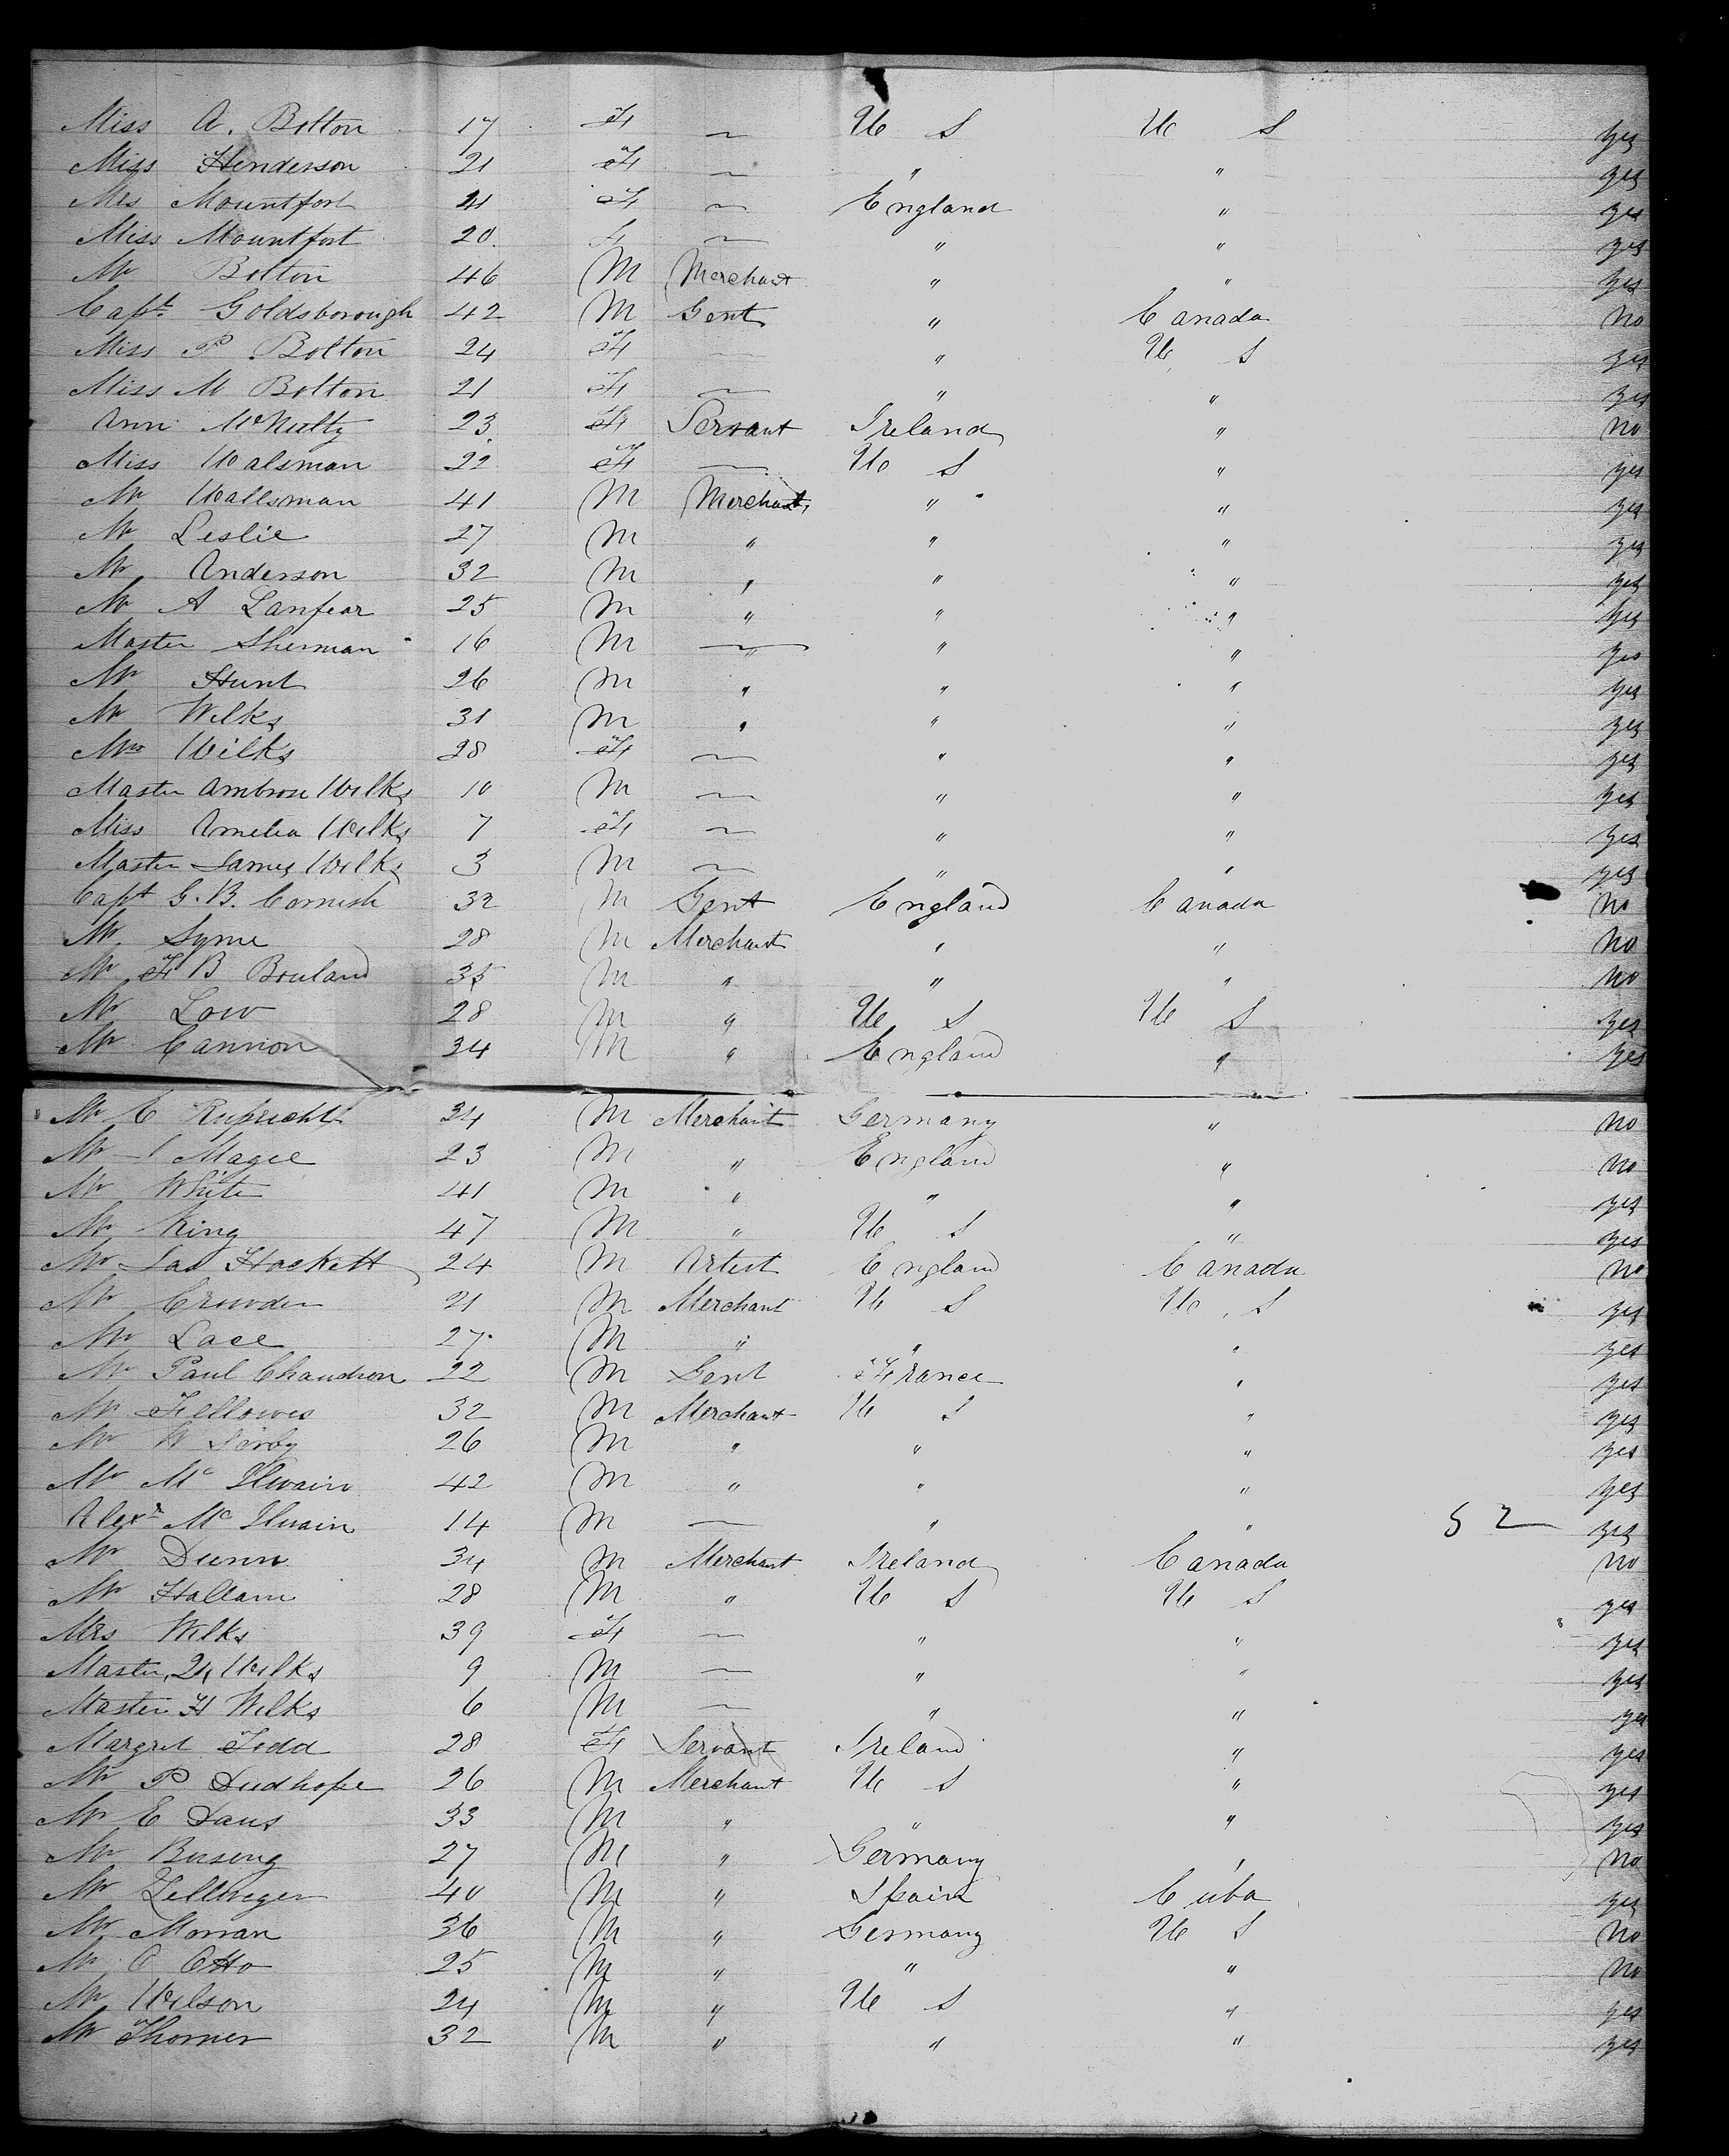 Miss A. Bolton 17 F — U S U S yes
Miss Henderson 21 F — " " yes
Mrs Mountfort 41 F — England " yes
Miss Mountfort 20. F — " " yes
Mr Bolton 46 M Merchant " " yes
Capt. Goldsborough 42 M Gent " Canada no
Miss P Bolton 24 F — " U S yes
Miss M Bolton 21 F — " " yes
Ann McNulty 23. F Servant Ireland " no
Miss Walsman 22 F — U S " yes
Mr Wallsman 41 M Merchant, " " yes
Mr Leslie 27 M " " " yes
Mr Anderson 32 M " " " yes
Mr A Lanfear 25 M " " " yes
Master Sherman 16 M — " " yes
Mr Hunt 26 M " " " yes
Mr Wilks 31 M " " " yes
Mrs Wilks 28 F — " " yes
Master Ambrose Wilks 10 M — " " yes
Miss Amelia Wilks 7 F — " " yes
Master James Wilks 3 M — " " yes
Capt G. B. Cornish 32 M Gent England Canada no
Mr. Syme 28 M Merchant " " no
Mr F B 35 M " " " no
Mr Low 28 M " U S U S yes
Mr Cannon 34 M " England " yes
Mr C Ruprecht 34 M Merchant Germany " no
Mr Magee 23 M " England " no
Mr White 41 M " " " yes
Mr King 47 M " U S " yes
Mr Jas Hackett 24 M Artist England Canada no
Mr Crowden 21 M Merchant U S U S yes
Mr Lace 27 M " " " yes
Mr Paul Chaudron 22 M Gent France " yes
Mr Fellowes 32 M Merchant U S " yes
Mr W 26 M " " " yes
Mr Mc Ilwain 42 M " " " yes
Alexr Mc Ilwain 14 M — " " 52 yes
Mr Dunn 34 M Merchant Ireland Canada no
Mr Hallam 28 M " U S U S yes
Mrs Wilks 39 F — " " yes
Master Wilks 9 M — " " yes
Master H Wilks 6 M — " " yes
Margret Todd 28 F Servant Ireland " yes
Mr P Dudhope 26 M Merchant U S " yes
Mr E 33 M " " " yes
Mr Buseng 27 M " Germany " no
Mr Zellweger 40 M " Spain Cuba yes
Mr Morran 36 M " Germany U S no
Mr O Otto 25 M " " " no
Mr Wilson 24 M " U S " yes
Mr Thorner 32 M " " " yes